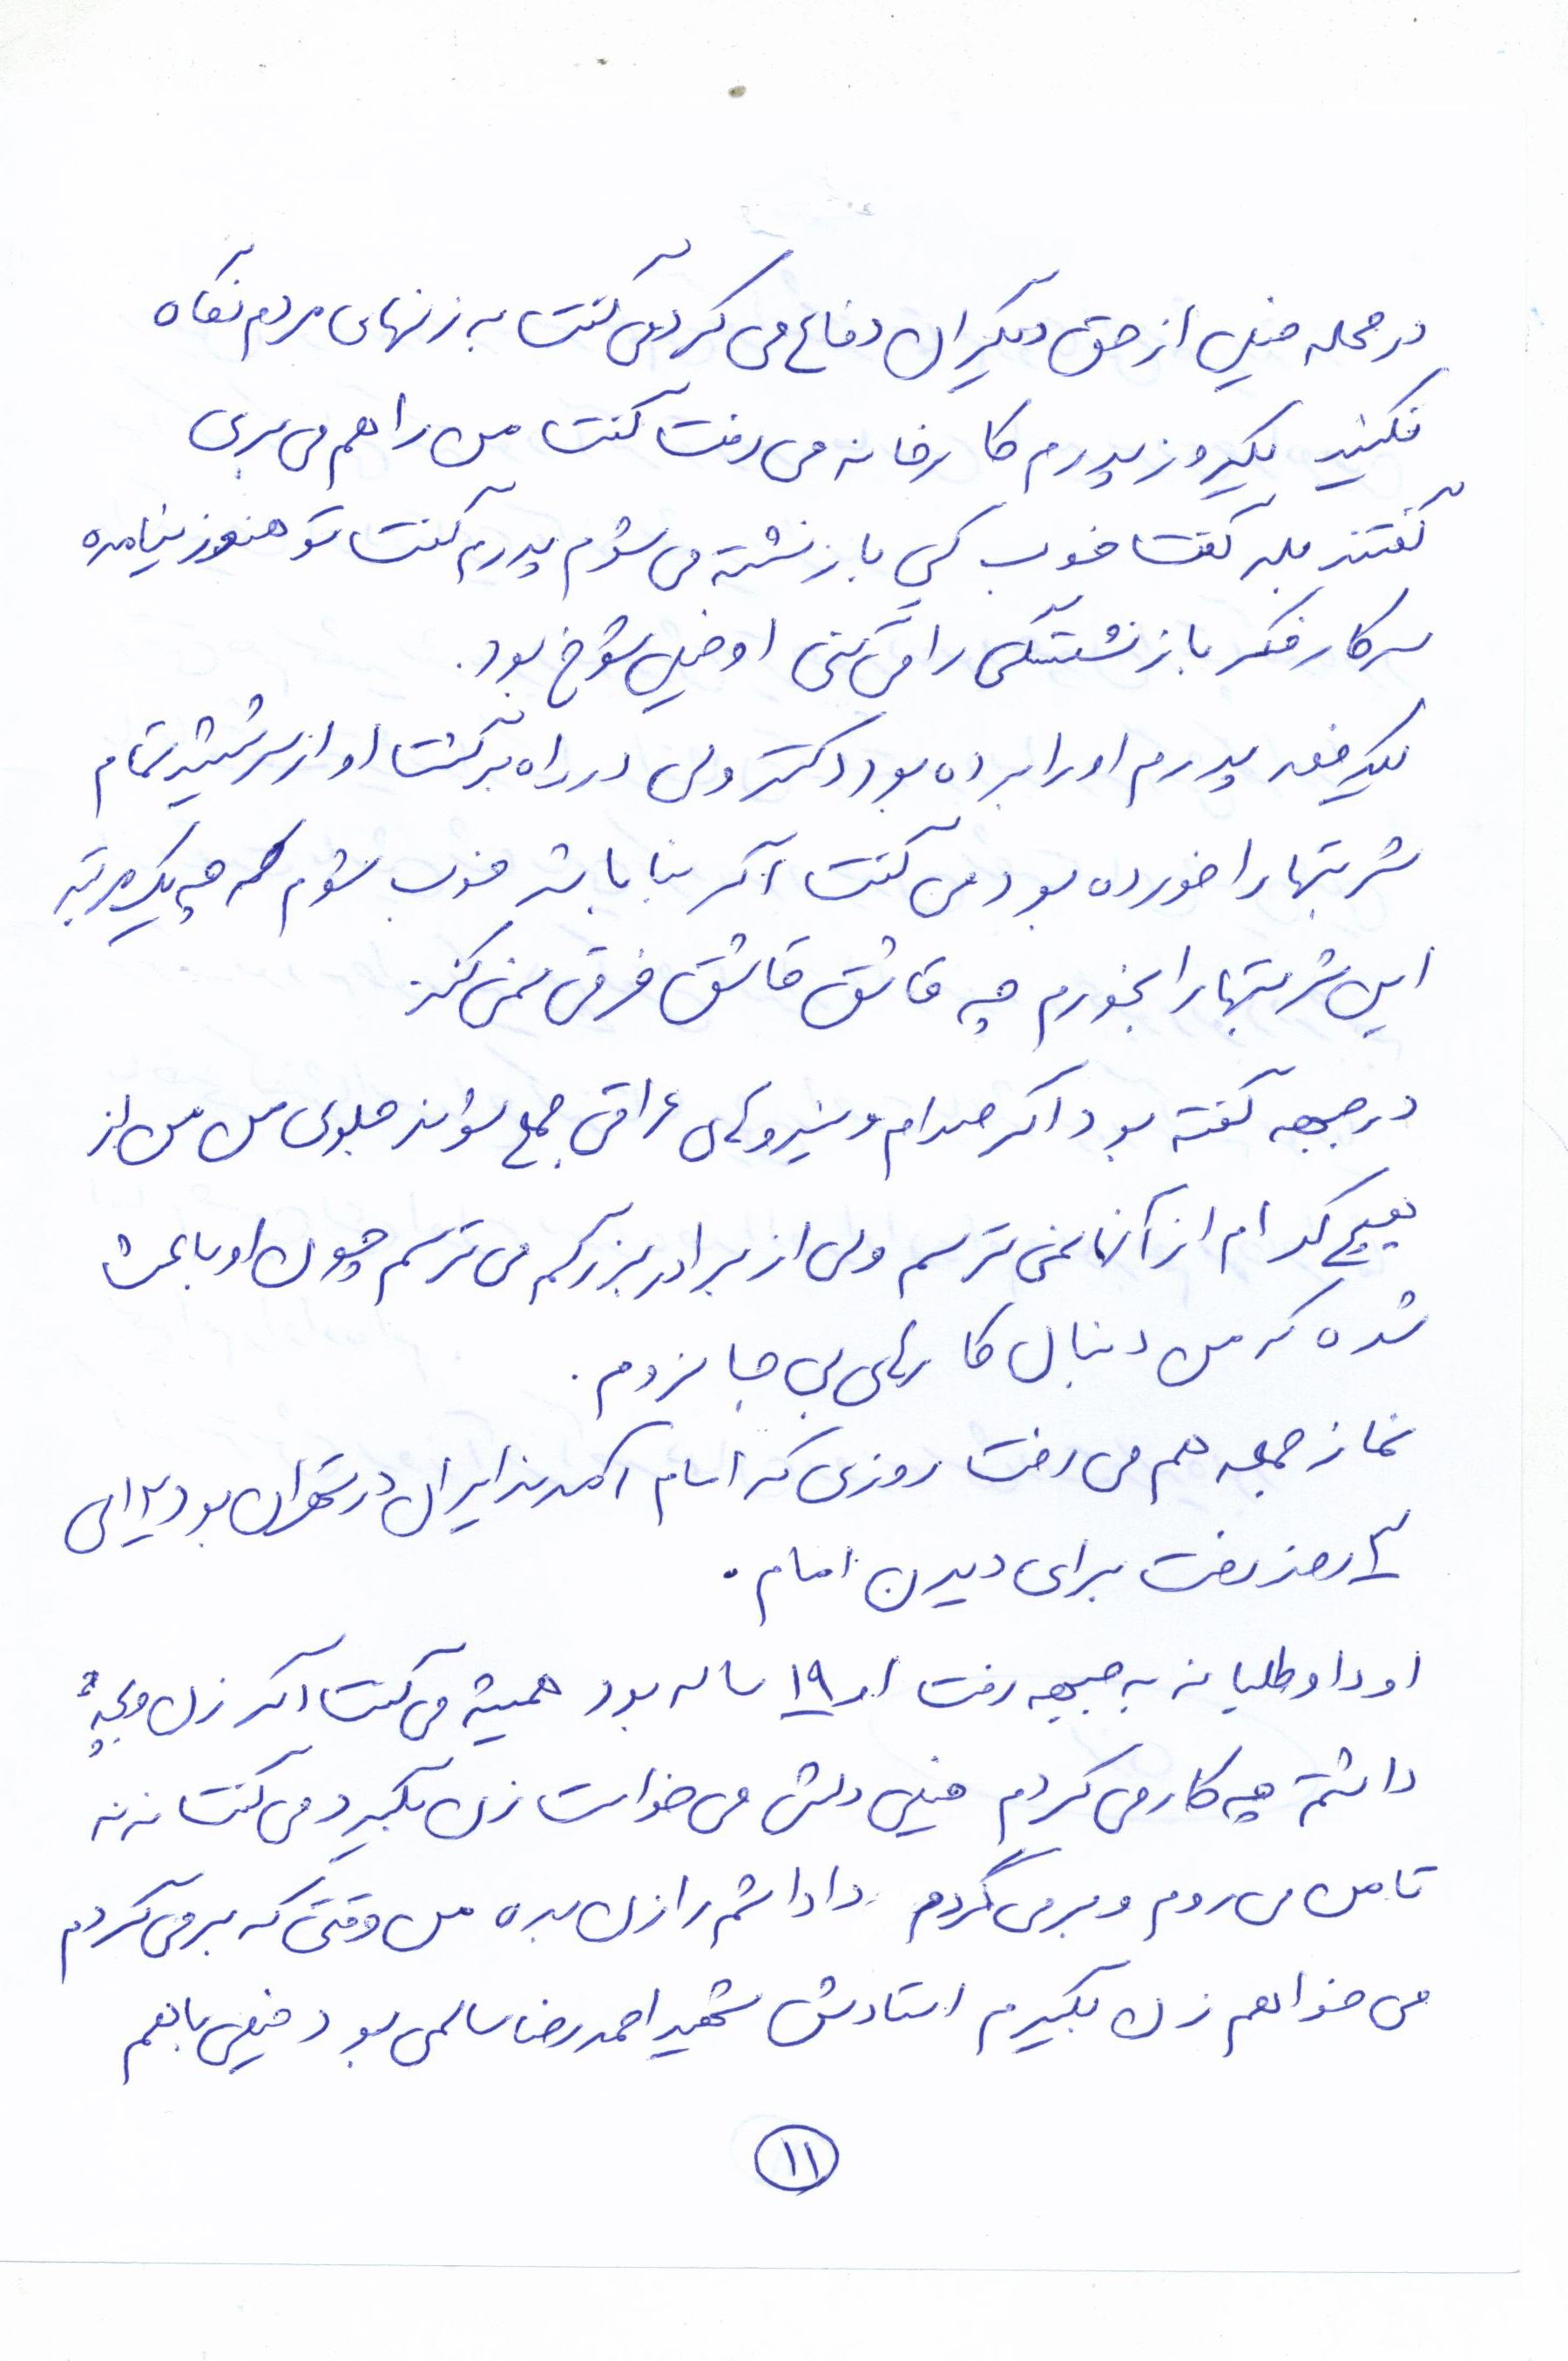 در محله خیلی از حق دیگران دفاع می کرد می گفت به زنهای مردم نگاه
نکنید یکروز پدرم کارخانه می رفت گفت من را هم می بری
گفتند بله گفت خوب کی بازنشته می شوم پدرم گفت تو هنوز نیامده
سرکار فکر بازنشستگی را می کنی او خیلی شوخ بود.
یکدفعه پدرم او را برده بود دکتر ولی در راه برگشت او از سر شیشه تمام
شربتها را خورده بود می گفت اگر بنا باشد خوب شوم که چه یک مرتبه
این شربتها را بخورم چه قاشق قاشق فرقی نمی کند.
در جبهه گفته بود اگر صدام و نیروهای عراقی جمع شوند جلوی من من از
هیچ کدام از آنها نمی ترسم ولی از برادر بزرگم می ترسم چون او باعث
شده که من دنبال کارهای بی جا نروم.
نماز جمعه هم می رفت روزی که امام آمدند ایران در تهران بود
۳ روز رفت برای دیدن امام.
او داوطلبانه به جبهه رفت او ۱۹ ساله بود همیشه می گفت اگر زن و بچه
داشتم چه کار می کردم خیلی دلش می خواست زن بگیرد می گفت نه نه
تا من می روم و برمی گردم داداشم را زن بده من وقتی که برمی گردم
می خواهم زن بگیرم استادش شهید احمدرضا سالمی بود خیلی با هم
۱۱